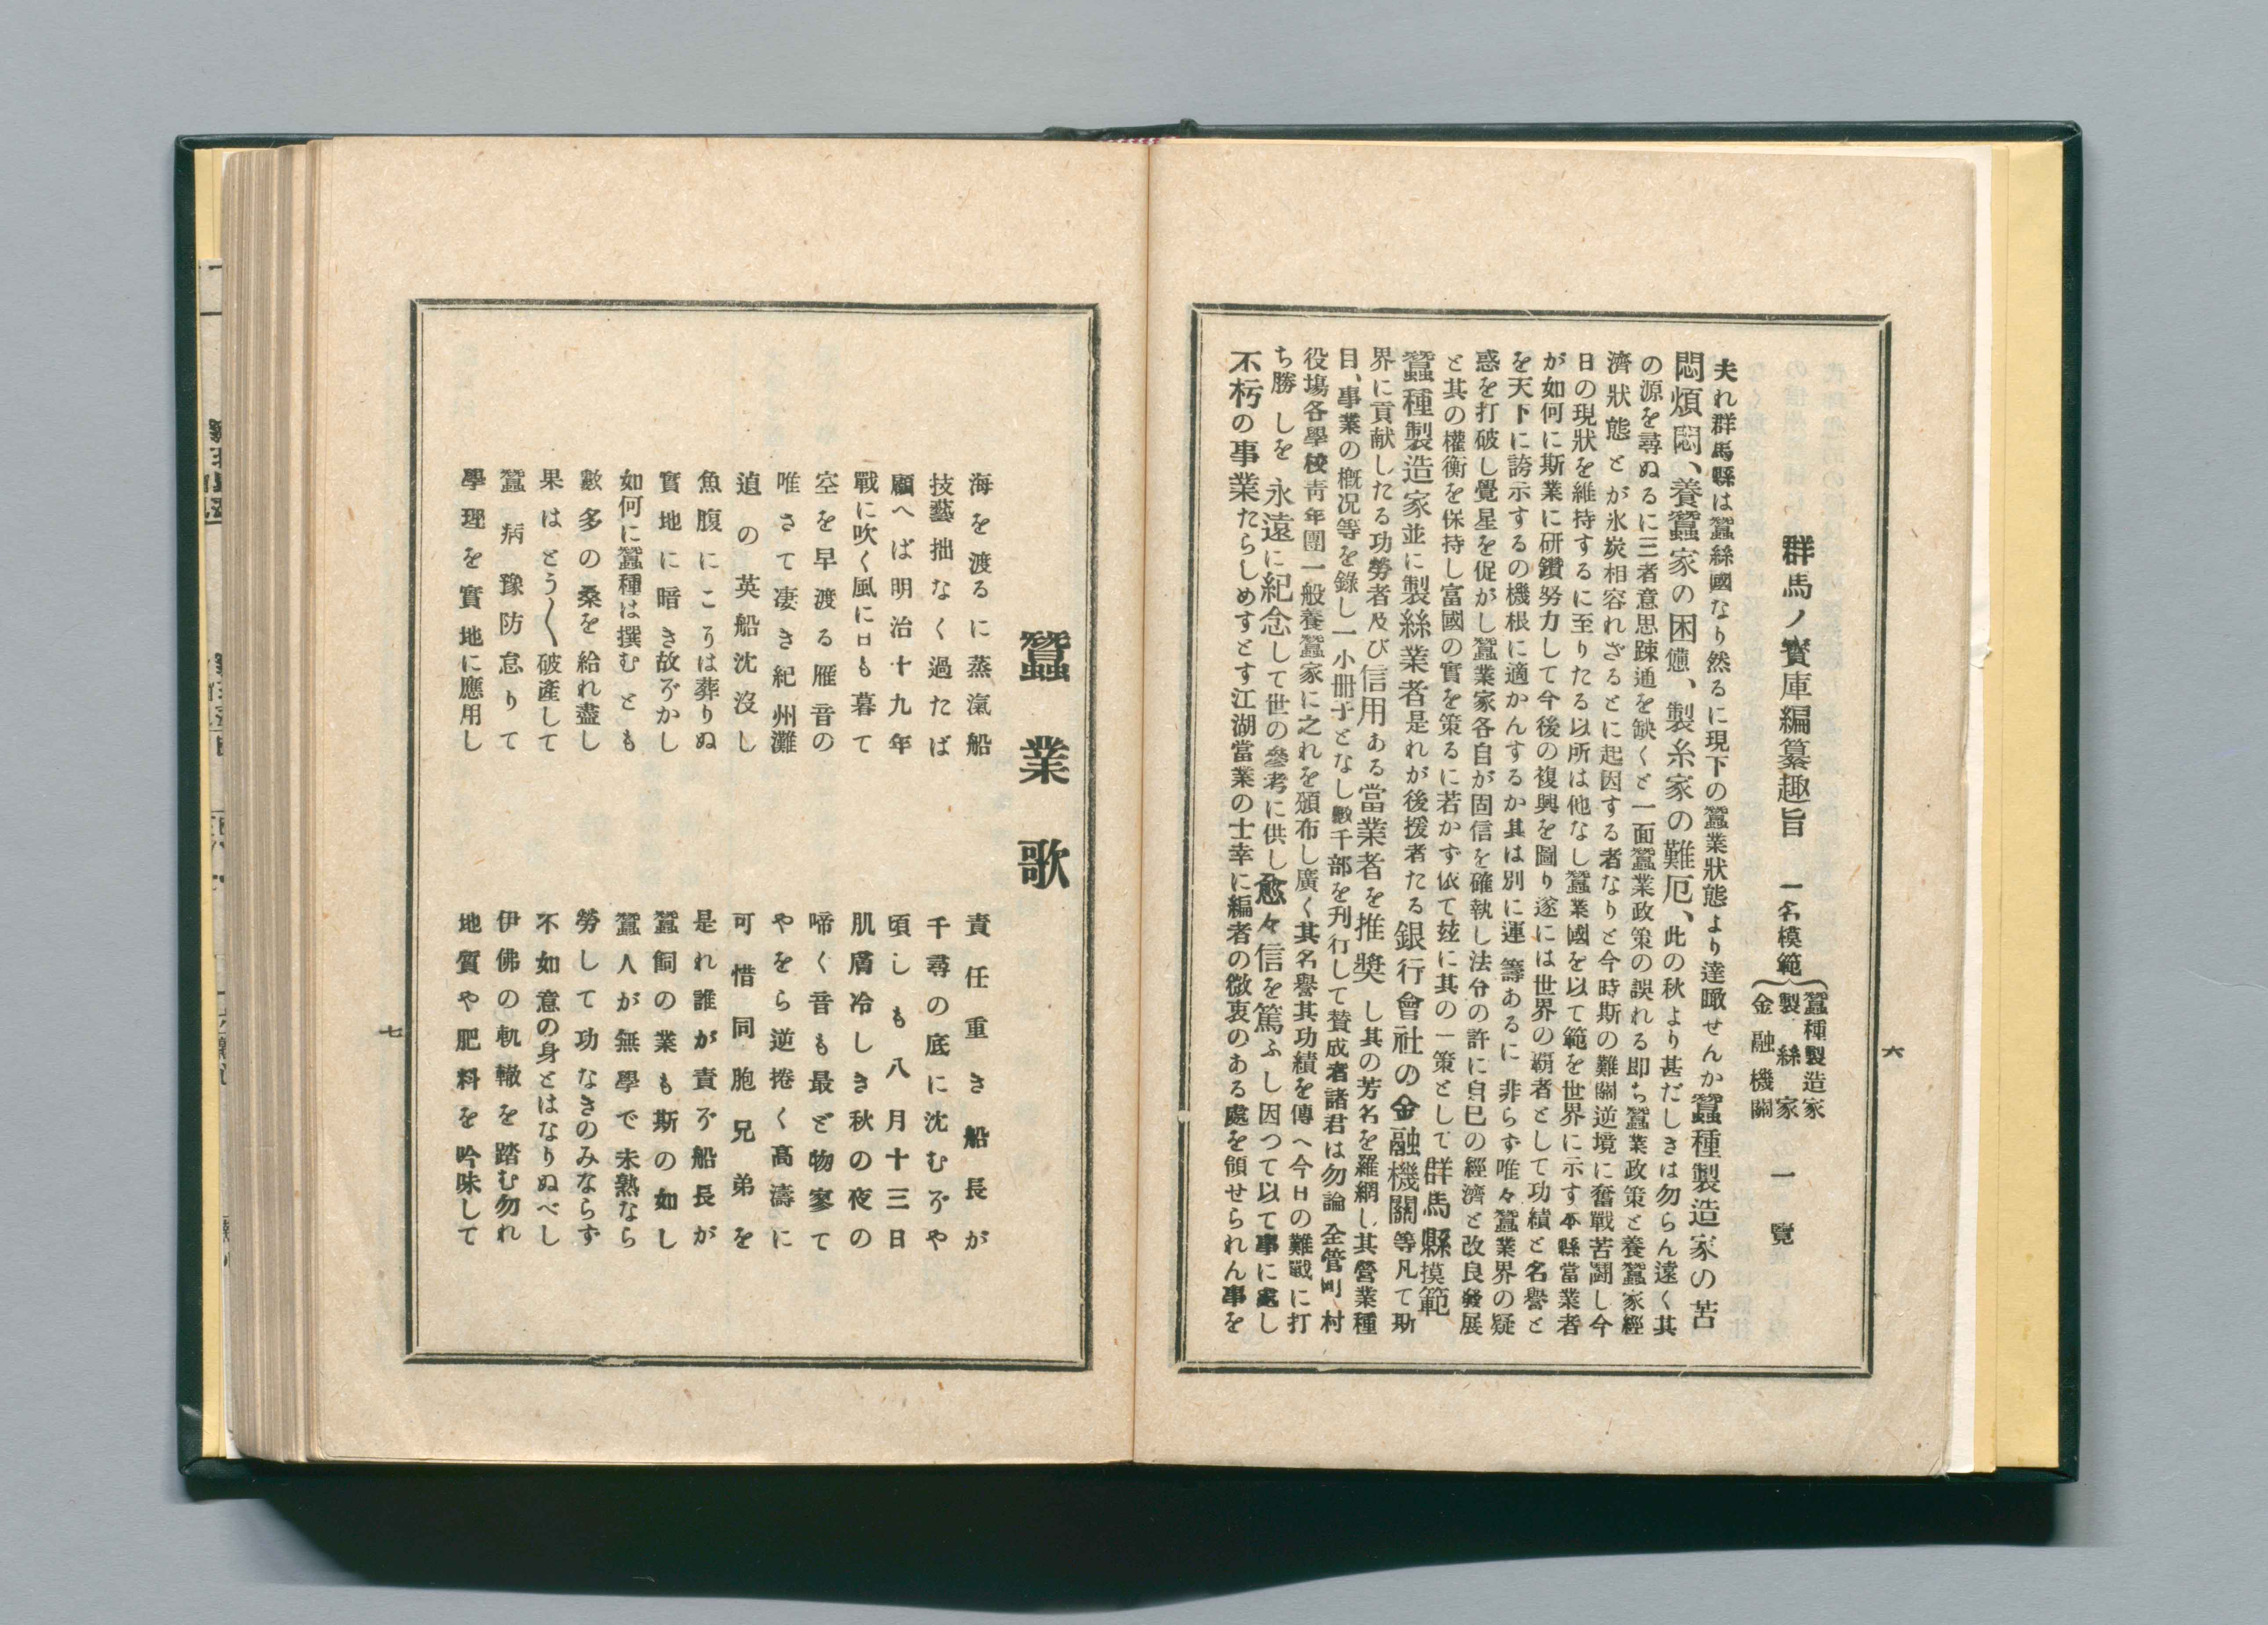 六
群馬ノ寳庫編纂趣旨 一名模範 蠶種製造家 製絲家 金融機關 一覽
夫れ群馬縣は蠶絲國なり然るに現下の蠶業狀態より達瞰せんか蠶種製造家の苦
悶煩悶、養蠶家の困憊、製糸家の難厄、此の秋より甚だしきは勿らん遠く其
の源を尋ぬるに三者意思踈通を缺くと一面蠶業政策の誤れる卽ち蠶業政策と養蠶家經
濟狀態とが氷炭相容れざるとに起因する者なりと今時斯の難關逆境に奮戰苦鬪し今
日の現狀を維持するに至りたる以所は他なし蠶業國を以て範を世界に示す本縣當業者
が如何に斯業に硏鑽努力して今後の複興を圖り遂には世界の覇者として功績と名譽と
を天下に誇示するの機根に適かんするか其は別に運籌あるに非らず唯々蠶業界の疑
惑を打破し覺星を促がし蠶業家各自が固信を確執し法令の許に自巳の經濟と改良發展
と其の權衡を保持し富國の實を策るに若かず依て玆に其の一策として群馬縣摸範
蠶種製造家並に製絲業者是れが後援者たる銀行會社の金融機關等凡て斯
界に貢献したる功勞者及び信用ある當業者を推奬し其の芳名を羅網し其營業種
目、事業の槪况等を錄し一小冊子となし數千部を刋行して賛成者諸君は勿論全管町村
役塲各學校靑年團一般養蠶家に之れを頒布し廣く其名譽其功績を傳へ今日の難戰に打
ち勝しを永遠に紀念して世の參考に供し愈々信を篤ふし因つて以て事に處し
不朽の事業たらしめすとす江湖當業の士幸に編者の微衷のある處を領せられん事を
蠶業歌
海を渡るに蒸滊船 責任重き船長が
技藝拙なく過たば 千尋の底に沈むぞや
顧へば明治十九年 頃しも八月十三日
戰に吹く風に日も暮て 肌膚冷しき秋の夜の
空を早渡る雁音の 啼く音も最ど物寥て
唯さて凄き紀州灘 やをら逆捲く高濤に
逭の英船沈沒し 可惜同胞兄弟を
魚腹にこうは葬りぬ 是れ誰が責ぞ船長が
實地に暗き故ぞかし 蠶飼の業も斯の如し
如何に蠶種は撰むとも 蠶人が無學で未熟なら
數多の桑を給れ盡し 勞して功なきのみならず
果はとう〱破產して 不如意の身とはなりぬべし
蠶病豫防怠りて 伊佛の軌轍を踏む勿れ
學理を實地に應用し 地質や肥料を吟味して
七